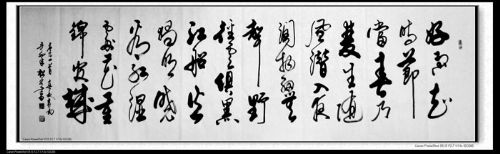 好雨知
時節
當春乃
發生隨
風潛入夜
潤物細無
聲野
徑雲俱黑
江船火
獨明曉
看紅濕
處花重
錦官城